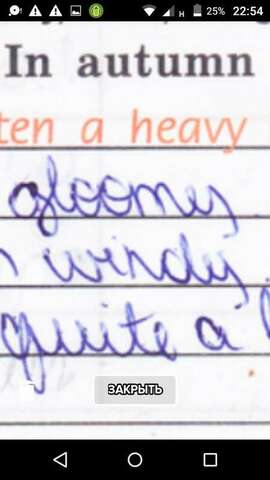 H 25% 22:54
In autumn
ten a heavy
gloomy.
windy.
quite a
ЗАКРЫТЬ